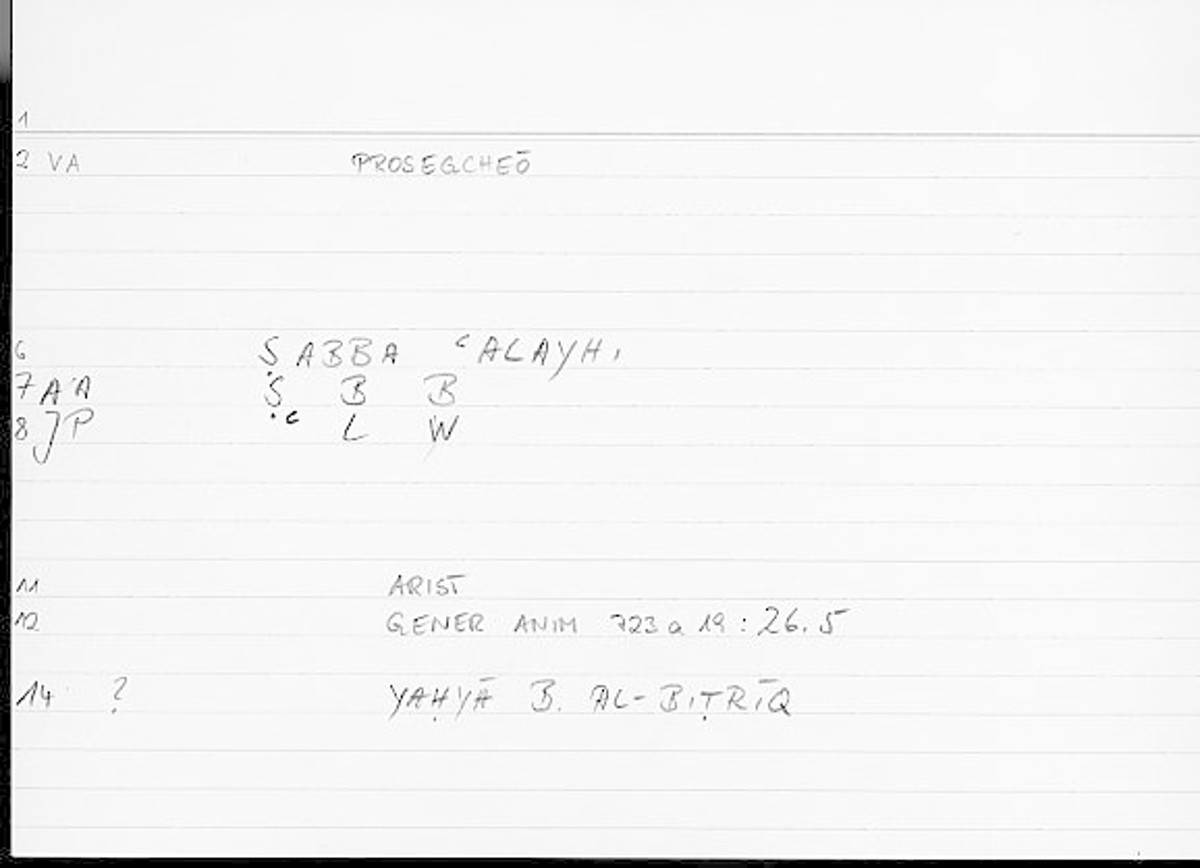 1
2 VA PROSEGCHEŌ
6 ṢABBA ʿALAYHI
7 A'A Ṣ B B
8 JP ʿ L W
11 ARIST
12 GENER ANIM 723 a 19 : 26.5
14 ? YAḤYĀ B. AL-BIṬRĪQ